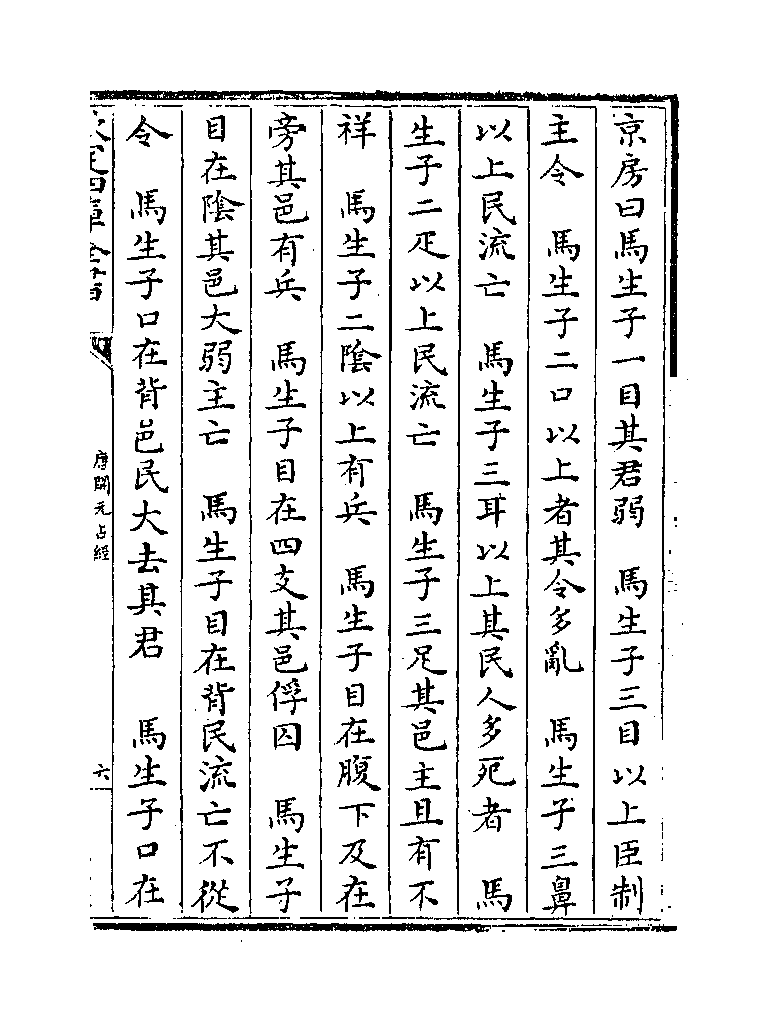 京房曰馬生子一目其君弱　馬生子三目以上臣制
主令　馬生子二口以上者其令多亂　馬生子三鼻
以上民流亡　馬生子三耳以上其民人多死者　馬
生子二疋以上民流亡　馬生子三足其邑主且有不
祥　馬生子二陰以上有兵　馬生子目在腹下及在
旁其邑有兵　馬生子目在四支其邑俘囚　馬生子
目在陰其邑大弱主亡　馬生子目在背民流亡不從
令　馬生子口在背邑民大去其君　馬生子口在
欽定四庫全書
唐開元占經
六